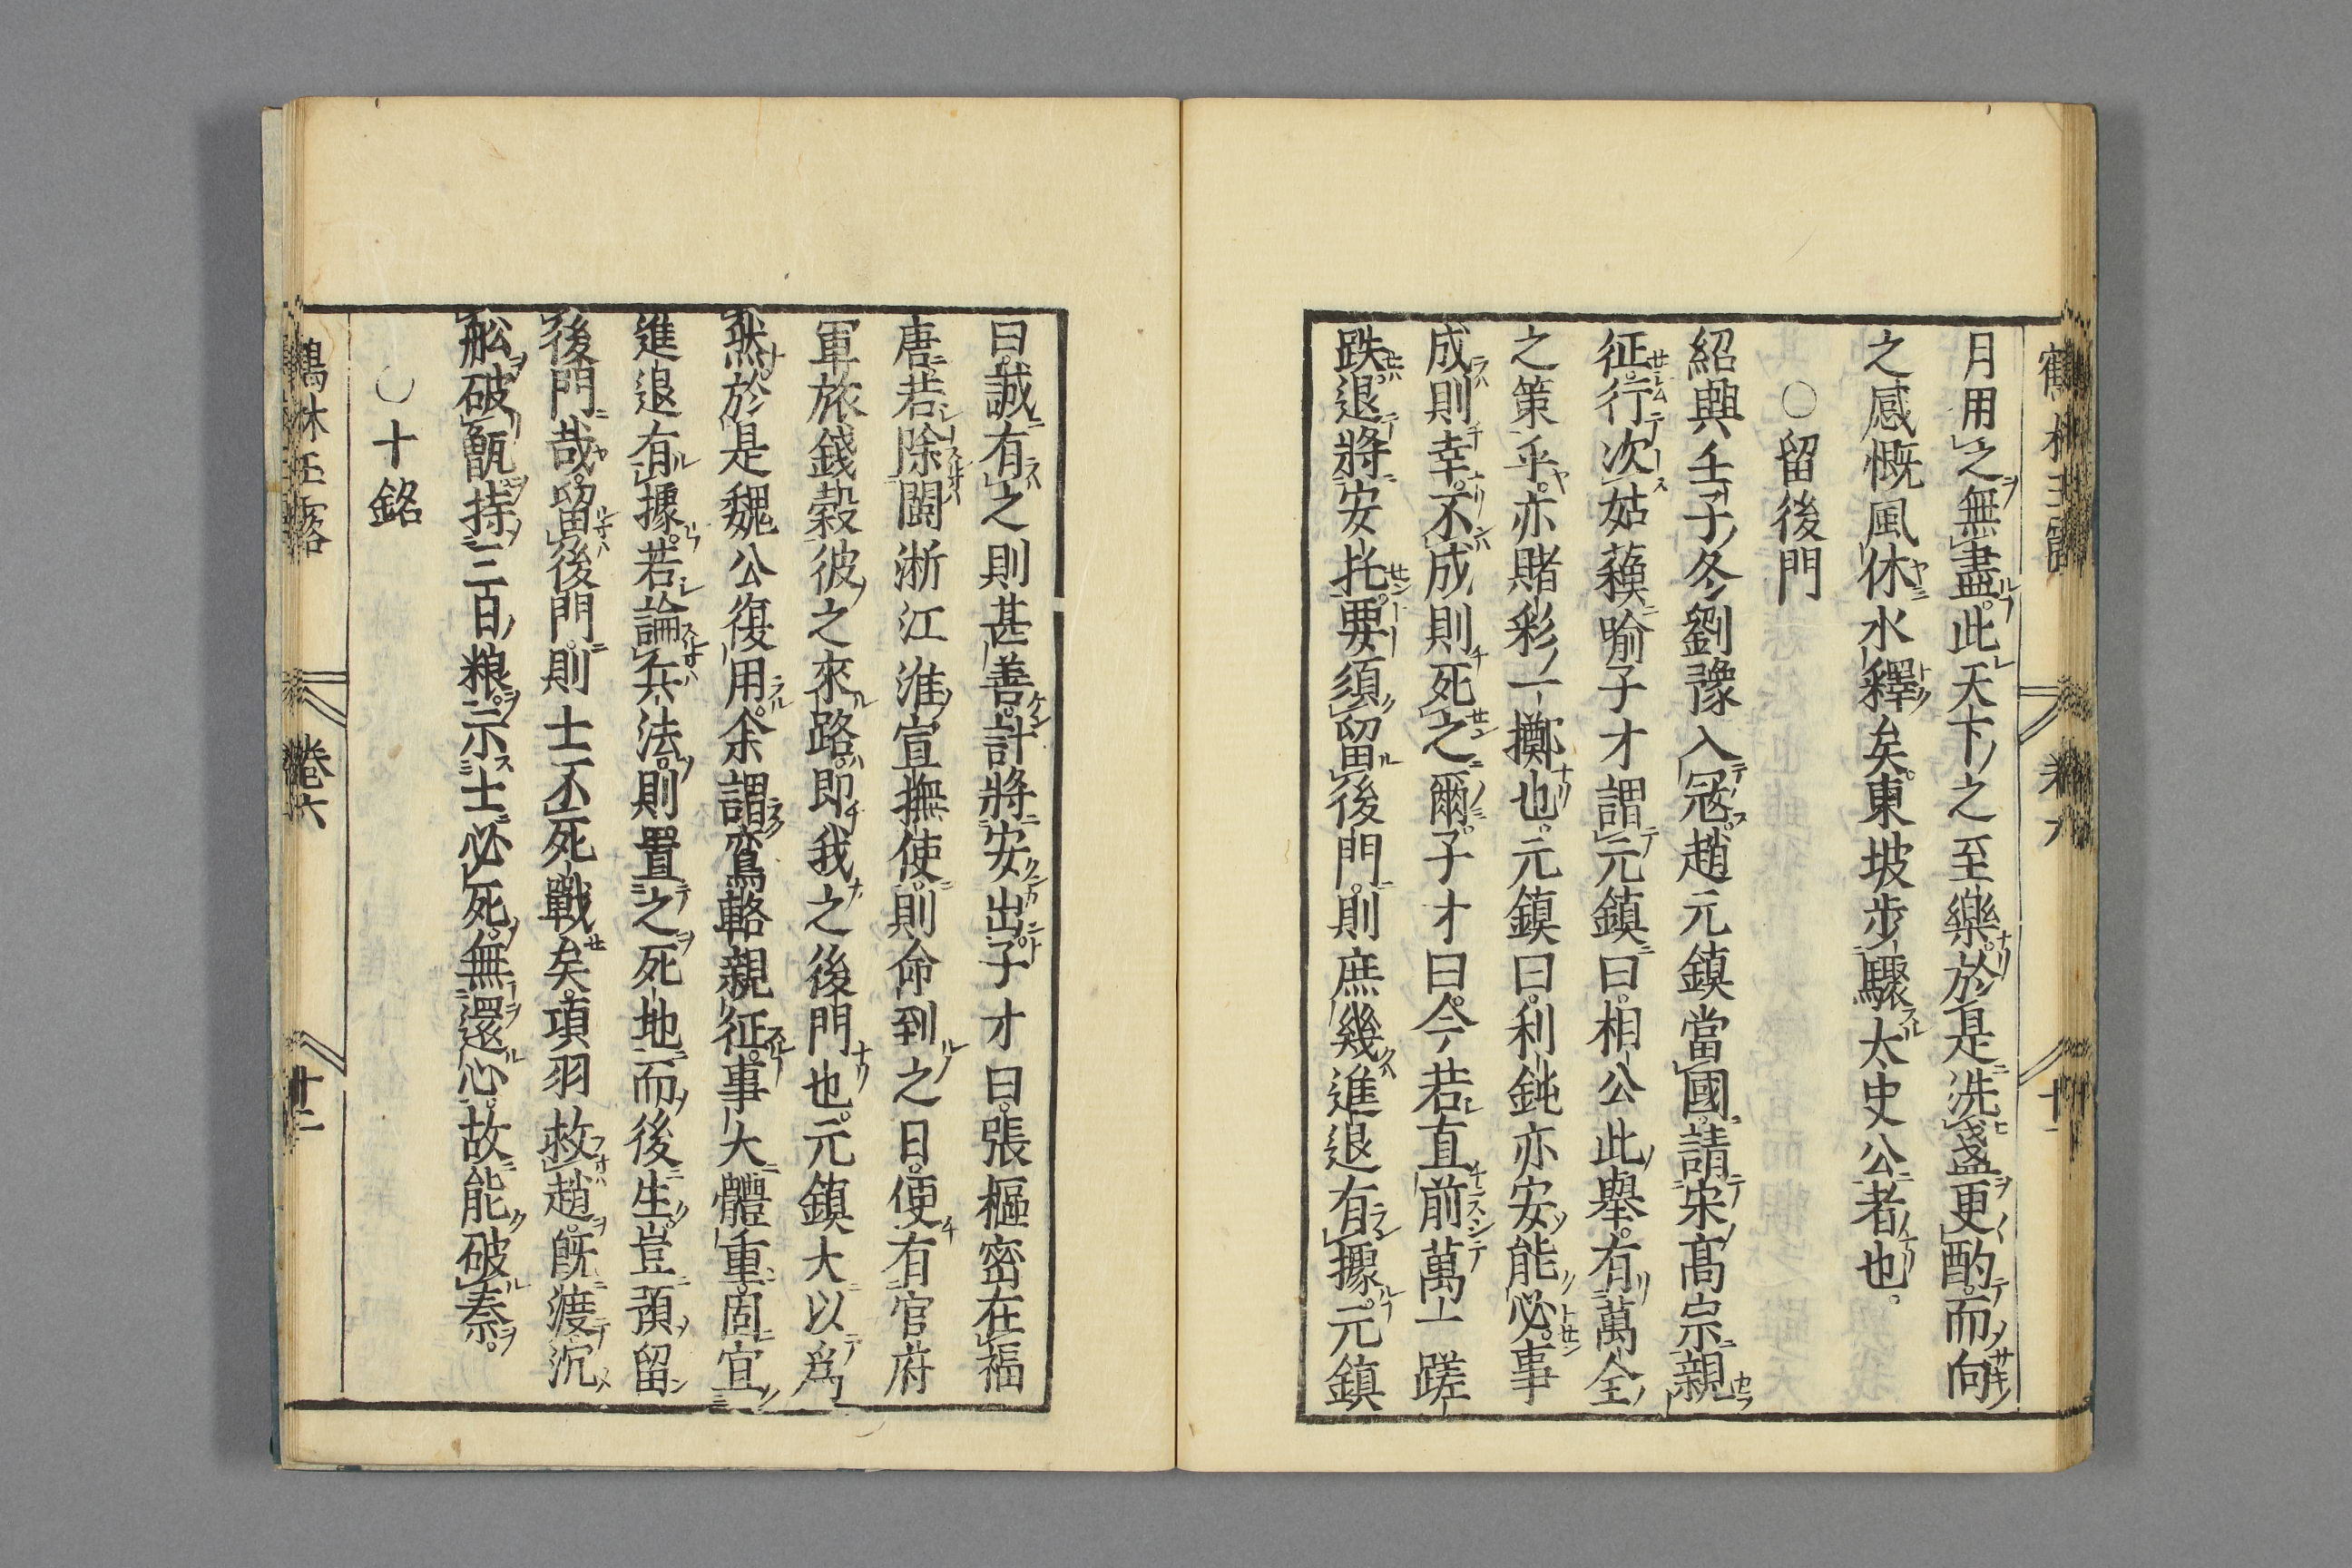 月用之無盡。此天下之至樂。於是洗盞更酌。而向
之感慨風休水釋矣。東坡步驟太史公者也。
○留後門
紹興壬子冬劉豫入冦。趙元鎮當國。請宋髙宗親
征。行次姑蘓。喻子才謂元鎮曰。相公此舉。有萬全
之策乎。亦賭彩一擲也。元鎮曰。利鈍亦安能必。事
成則幸。不成則死之爾。子才曰。今若直前萬一蹉
跌。退將安托。要須留後門。則庶幾進退有據。元鎮
曰。誠有之則甚善。計將安出。子才曰。張樞密在福
唐。若除閩浙江淮宣撫使。則命到之日。便有官府
軍旅錢穀。彼之來路。即我之後門也。元鎮大以爲
然。於是魏公復用。余謂鸞輅親征。事大體重。固宜
進退有據。若論兵法。則置之死地而後生。豈預留
後門哉。留後門。則士不死戰矣。項羽救趙。既渡沉
舩破甑。持三百粮。示士必死。無還心。故能破秦。
○十銘
卷六
十二